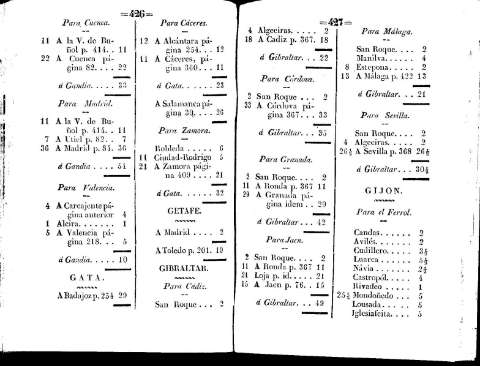 =426=
Para Cuenca.
11 A la V. de Bu-
ñol p. 414. . 11
22 A Cuenca pá-
gina 82. . . . 22
á Gandia. . . . . 33
Para Madrid.
11 A la V. de Bu-
ñol p. 414. . 11
7 A Utiel p. 82. . 7
36 A Madrid p. 81. 36
á Gandia . . . . . 54
Para Valencia.
4 A Carcajente pá-
gina anterior 4
1 Alcira. . . . . . 1
5 A Valencia pá-
gina 218. . . 5
á Gandia. . . . . 10
GATA.
A Badajoz p. 254 29
Para Cáceres.
12 A Alcántara pá-
gina 254. . . 12
11 A Cáceres, pá-
gina 360. . . 11
á Gata. . . . . . 23
A Salamanca pá-
gina 39. . . . 26
Para Zamora.
Robleda . . . . . 6
11 Ciudad-Rodrigo 5
21 A Zamora pági-
na 409 . . . . 21
á Gata. . . . . . 32
GETAFE.
A Madrid . . . . 2
A Toledo p. 201. 19
GIBRALTAR.
Para Cadiz.
San Roque . . . 2
=427=
4 Algeciras. . . . . 2
18 A Cadiz p. 367. 18
á Gibraltar. . . 22
Para Córdoba.
2 San Roque . . . 2
33 A Córdova pá-
gina 367. . . 33
á Gibraltar. . . 35
Para Granada.
2 San Roque. . . . 2
11 A Ronda p. 367 11
29 A Granada pá-
gina idem . . 29
á Gibraltar . . . 42
Para Jaen.
2 San Roque. . . . 2
11 A Ronda p. 367 11
21 Loja p. id. . . . . 21
15 A Jaen p. 76. . 15
á Gibraltar. . . 49
Para Málaga.
San Roque. . . . 2
Manilva. . . . . . 4
8 Estepona. . . . . 2
13 A Málaga p. 422 13
á Gibraltar. . . 21
Para Sevilla.
San Roque. . . . 2
4 Algeciras. . . . . 2
26½ A Sevilla p. 368 26½
á Gibraltar. . . 30½
GIJON.
Para el Ferrol.
Candas. . . . . . 2
Avilés. . . . . . . 2
Cudillero. . . . . 3½
Luarca . . . . . . 5½
Návia . . . . . . . 2½
Castropól. . . . . 4
Rivadeo . . . . . 1
25½ Mondoñedo . . . 5
Lousada. . . . . . 5
Iglesiafeita . . . . 5